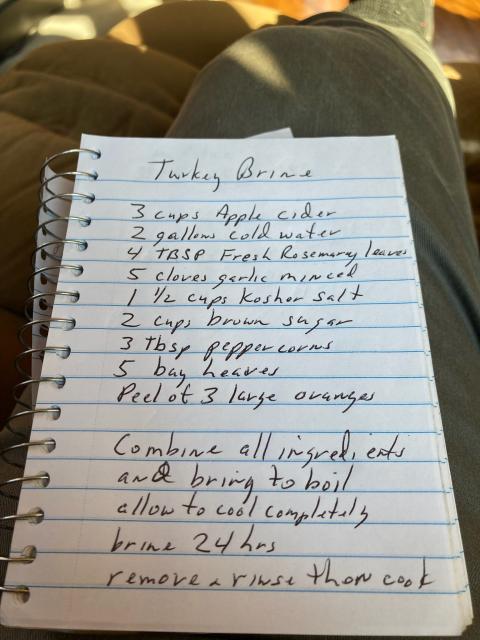 Turkey Brine
3 cups Apple cider
2 gallons cold water
4 TBSP Fresh Rosemary leaves
5 cloves garlic minced
1 1/2 cups Kosher salt
2 cups brown sugar
3 tbsp peppercorns
5 bay leaves
Peel of 3 large oranges
Combine all ingredients
and bring to boil
allow to cool completely
brine 24 hrs
remove & rinse then cook